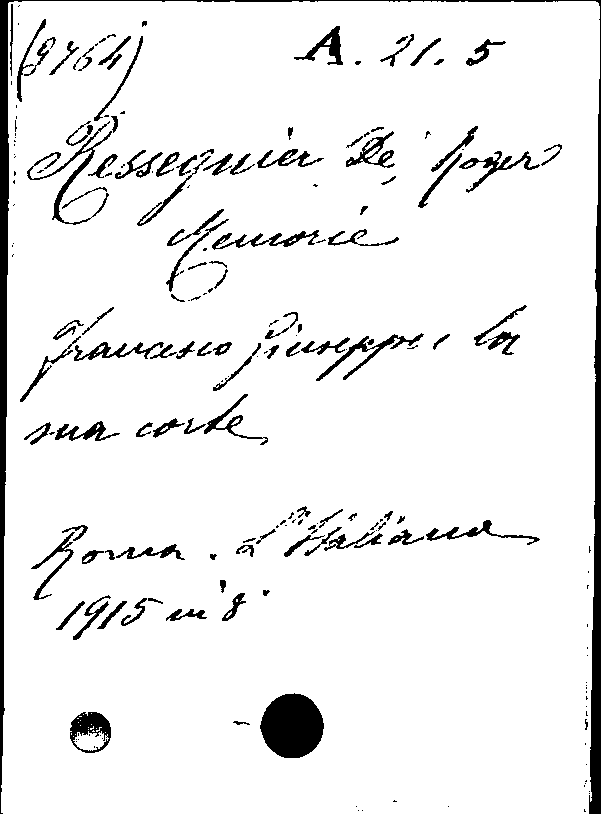 (9764) A. 21. 5
Resseguier De, Roger
Memorie
Francesco Giuseppe e la
sua corte
Roma. L'Italiana
1915 in 8°